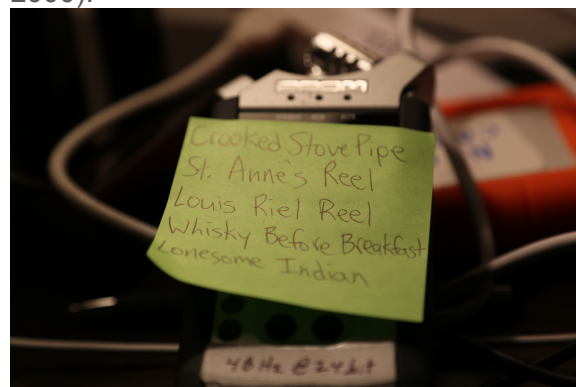 2006).
ZOOM
Crooked Stove Pipe
St. Anne's Reel
Louis Riel Reel
Whisky Before Breakfast
Lonesome Indian
48Hz @ 24bit